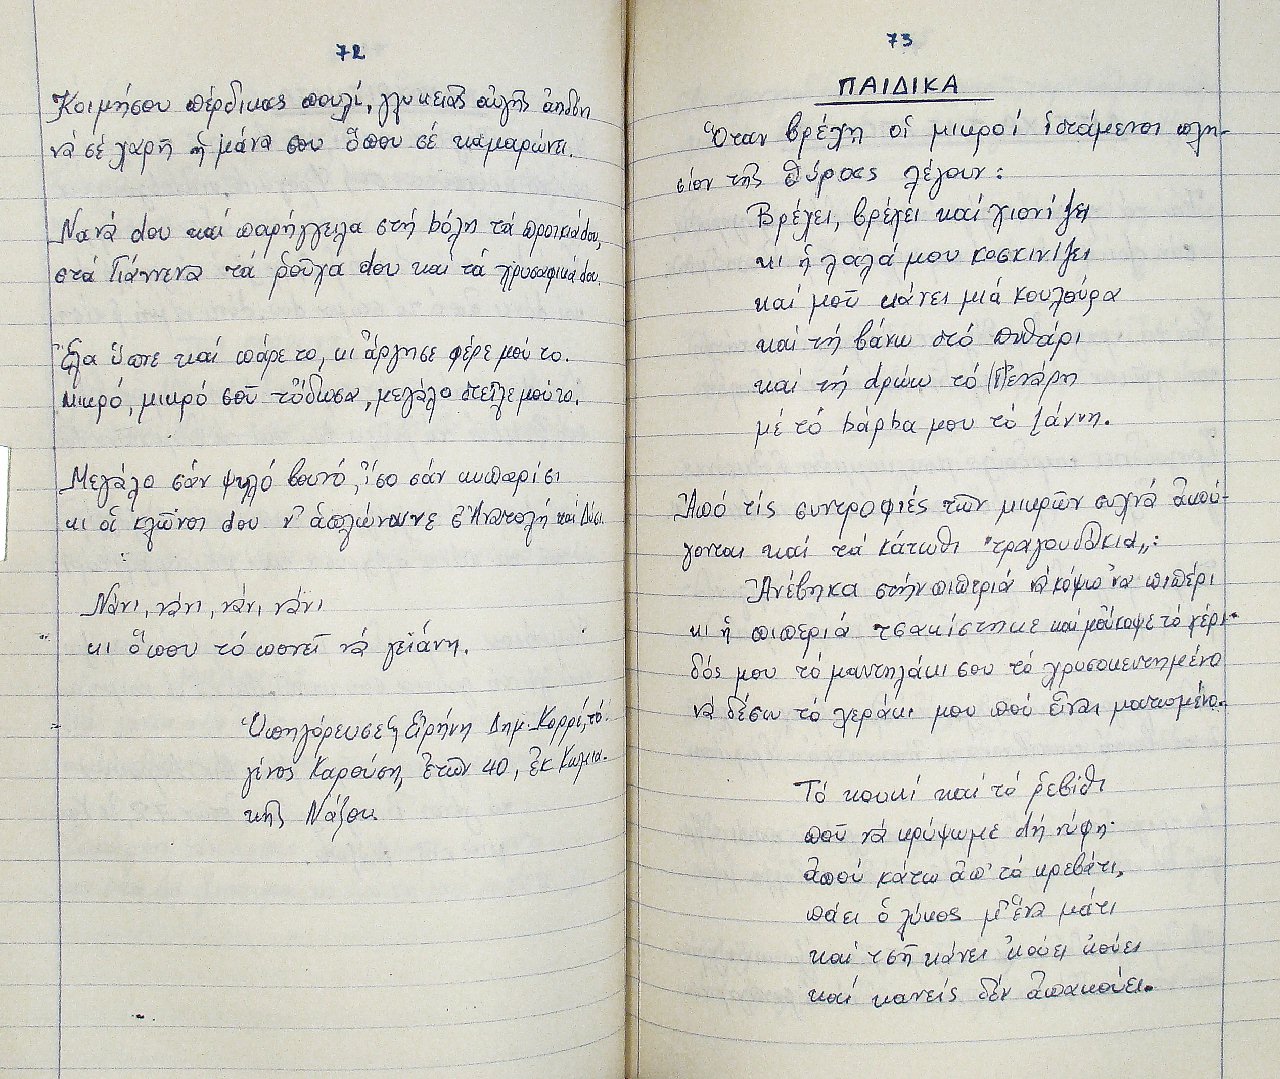 72
Κοιμήσου πέρδικας πουλί, γλυκειᾶς αὐγῆς ἀηδόνι
νά σέ χαρῆ ἡ μάνα σου ὅπου σέ καμαρώνει.
Νανά dου καί παρήγγειλα στή bόλη τά προικιά dου,
στά Γιάννενα τά ροῦχα dου καί τά χρυσαφικά dου.
Ἔλα ὕπνε καί πάρε το, κι ἄργησε φέρε μού το.
Μικρό, μικρό σοῦ τὄδωσα, μεγάλο στεῖλε μού το.
Μεγάλο σάν ψηλό βουνό, ἴσο σάν κυπαρίσι
κι οἱ κλῶνοι dου ν' ἁπλώνουνε σ' Ἀνατολή καί Δύσι.
Νάνι, νάνι, νάνι, νάνι
κι ὅπου τό πονεῖ νά γειάνη.
Ὑπηγόρευσε ἡ Εἰρήνη Δημ. Κορρέ, τό
γένος Καρούση, ἐτῶν 40, ἐκ Κωμια-
κῆς Νάξου.
73
ΠΑΙΔΙΚΑ
Ὅταν βρέχη οἱ μικροί ἱστάμενοι πλη-
σίον τῆς θύρας λέγουν:
Βρέχει, βρέχει καί χιονίζει
κι ἡ λαλά μου κοσκινίζει
καί μοῦ κάνει μιά κουλούρα
καί τή βάνω στό πιθάρι
καί τή dρώω τό Γενάρη
μέ τό bάρbα μου τό Γιάννη.
Ἀπό τίς συντροφιές τῶν μικρῶν συχνά ἀκού-
γονται καί τά κάτωθι "τραγουδάκια„:
Ἀνέβηκα στήν πιπεριά νά κόψω 'να πιπέρι
κι ἡ πιπεριά τσακίστηκε καί μοὔκοψε τό χέρι
δός μου τό μαντηλάκι σου τό χρυσοκεντημένο
νά δέσω τό χεράκι μου πού εἶναι ματωμένο.
Τό κουκί καί τό ρεβίθι
ποῦ νά κρύψωμε dή νύφη
ἀπού κάτω ἀπ' τό κρεβάτι,
πάει ὁ λύκος μ' ἕνα μάτι
καί τσῆ κάνει κούει κούει
καί κανείς δέν ἀπακούει.